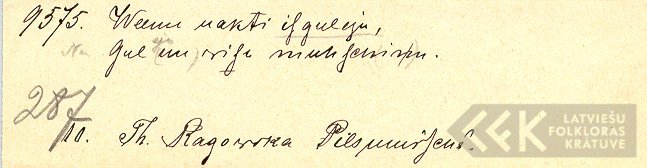 9575. Weenu nakti isguleju,
Gul un wisu muhschinu.
287
10. Th. Ragowska Pilsmuischâ.
LATVIEŠU
FOLKLORAS
KRĀTUVE